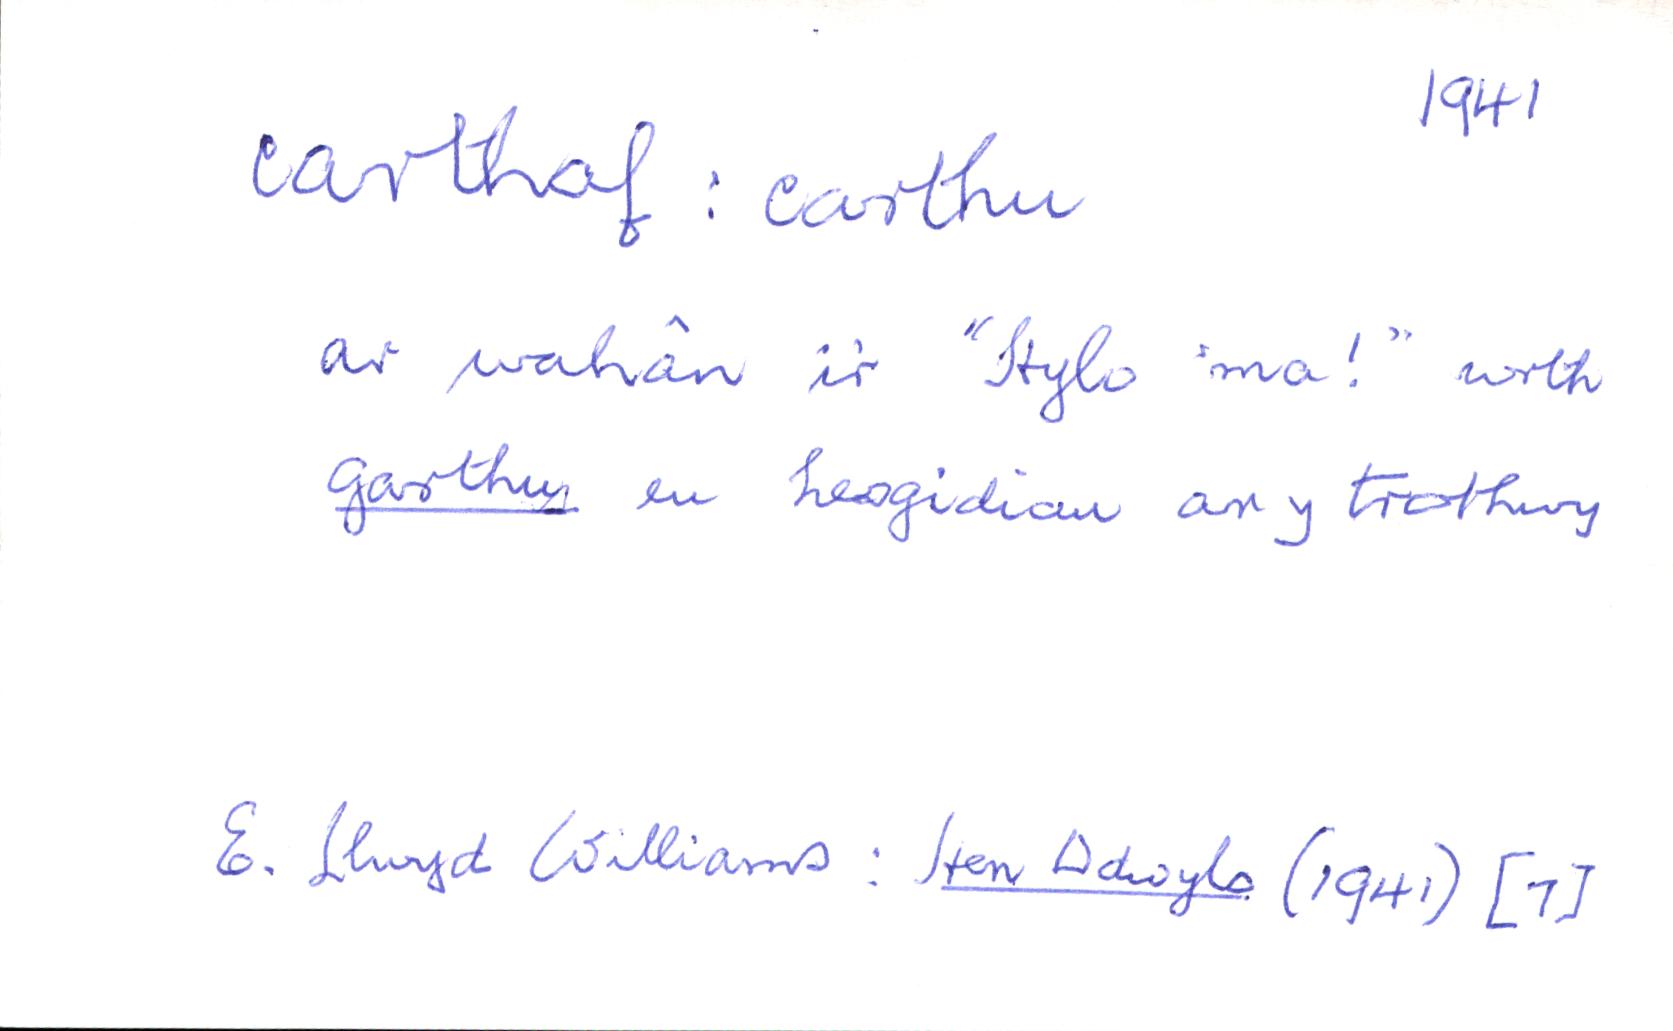 1941
carthaf : carthu
ar wahân i'r "Hylo 'ma!" wrth
garthu eu hesgidiau ar y trothwy
E. Llwyd Williams : Hen Ddwylo (1941) [7]